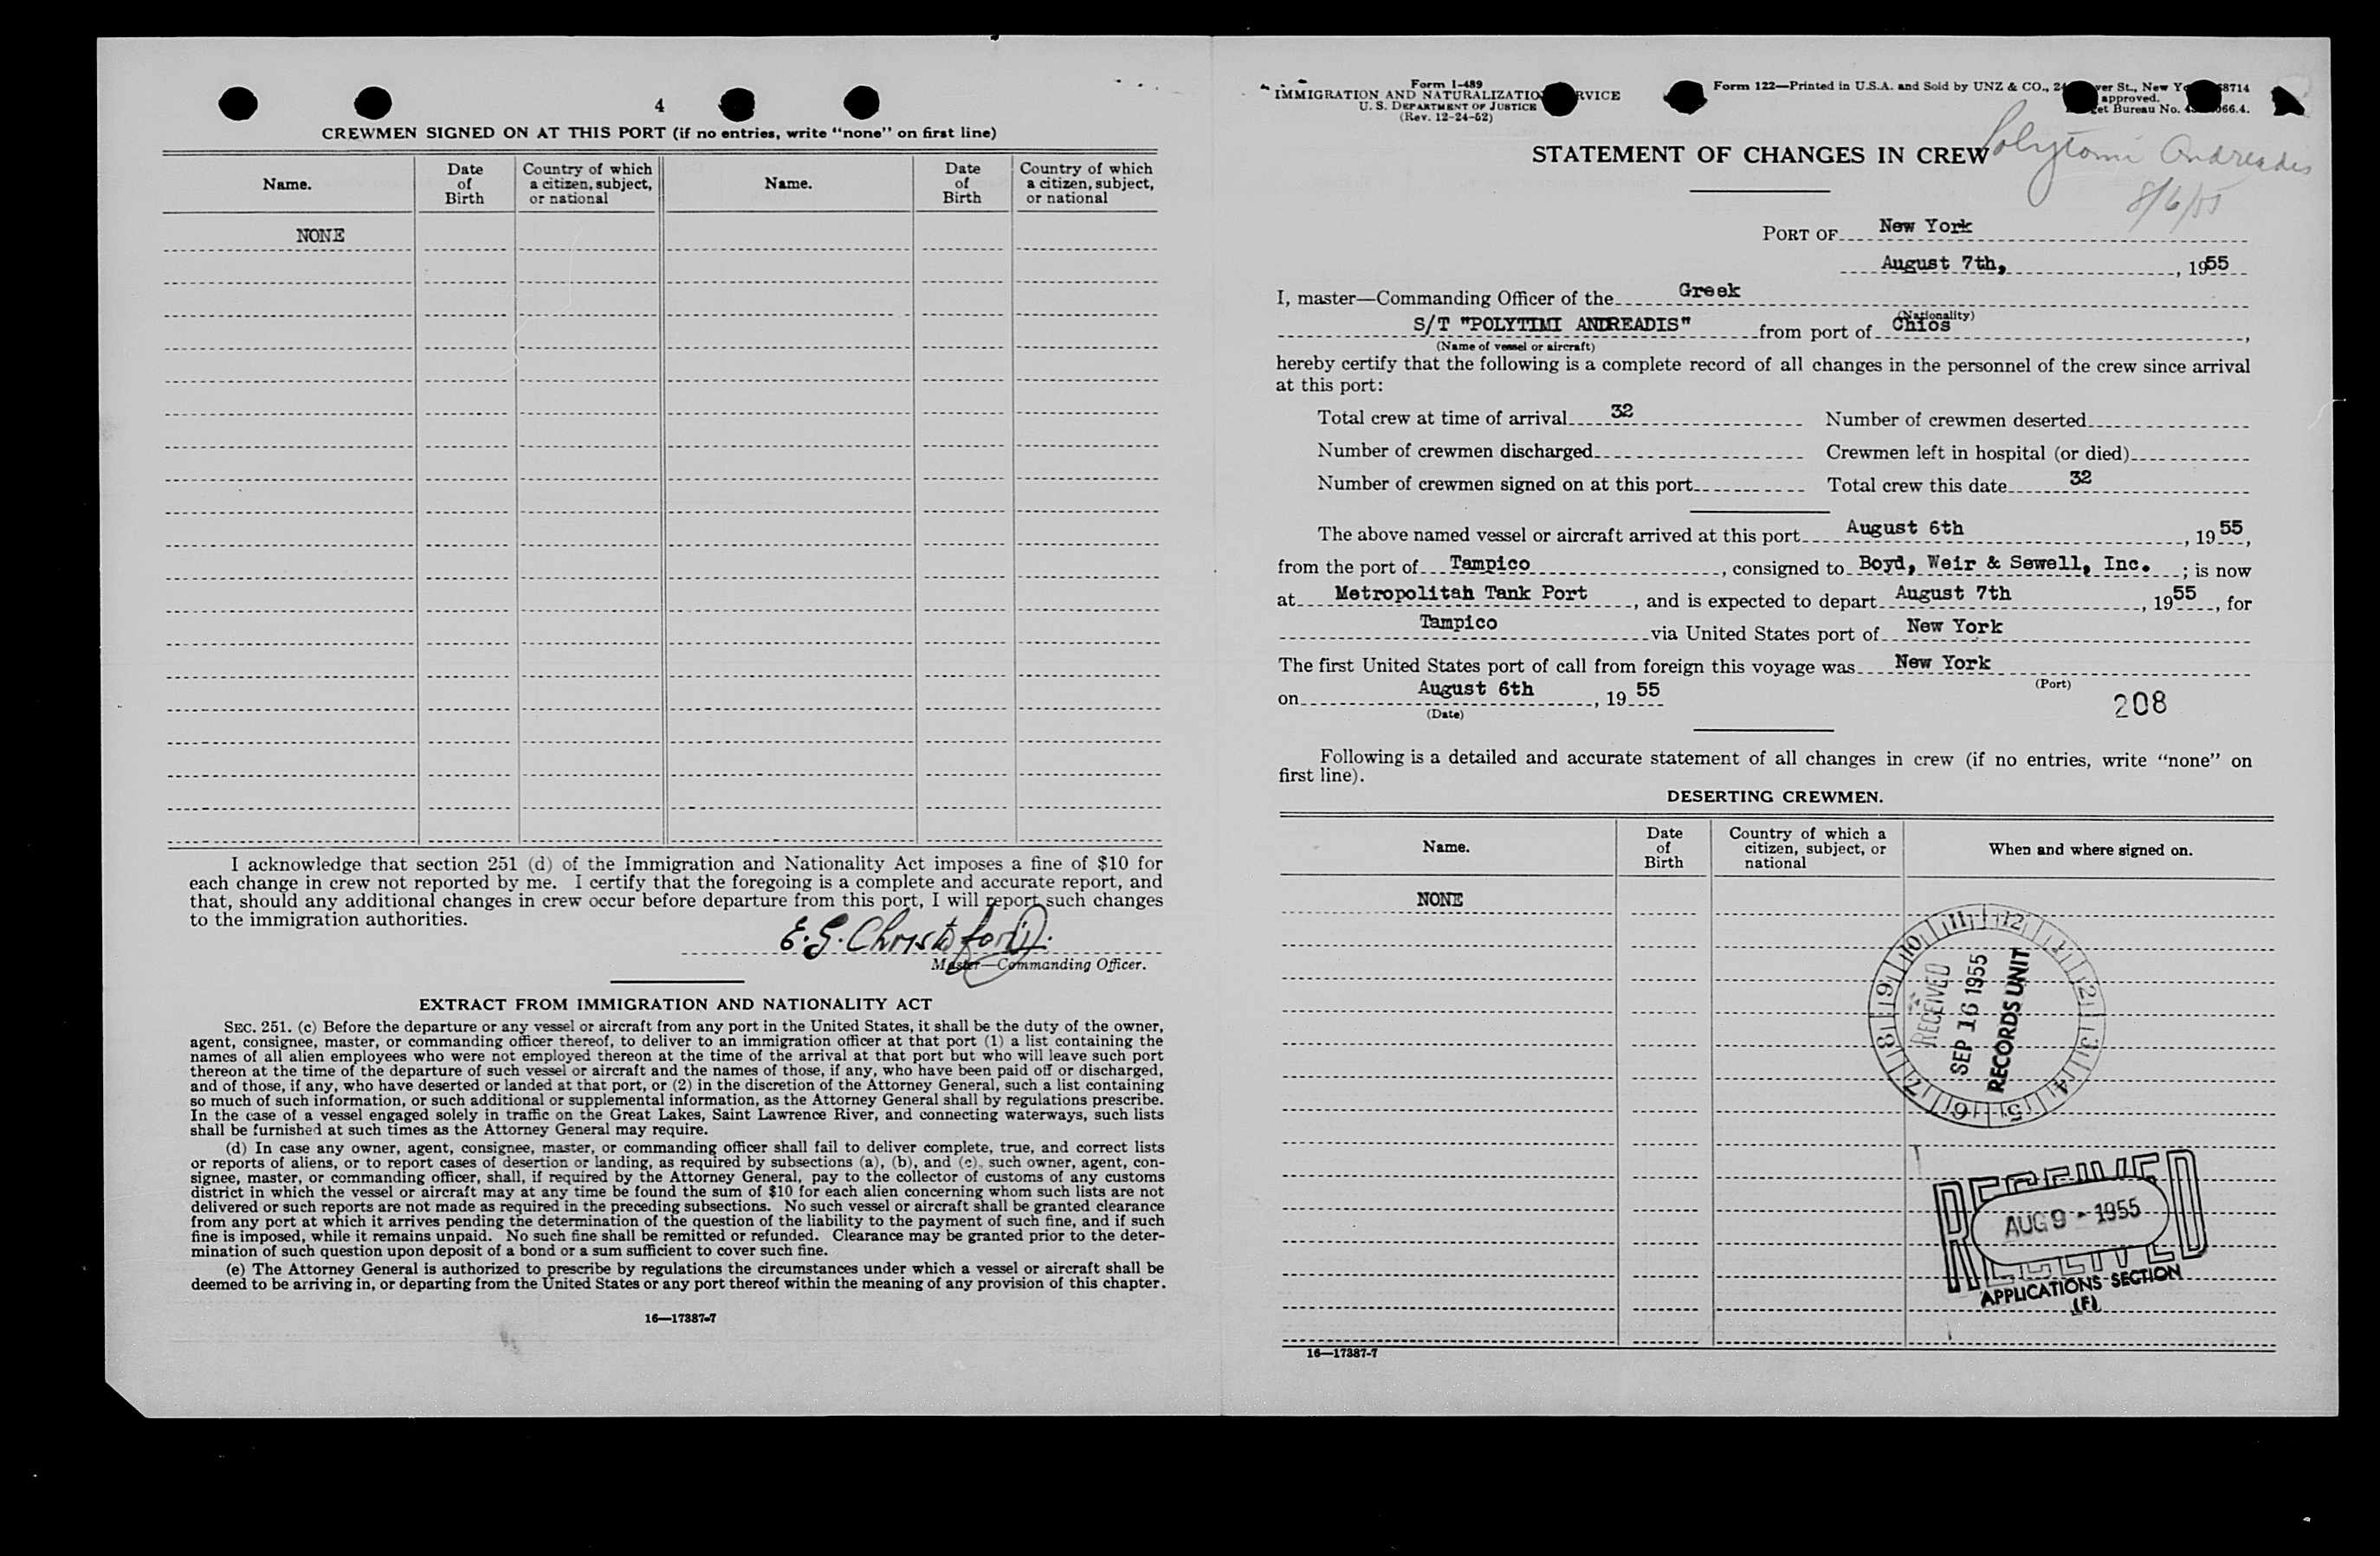 4
CREWMEN SIGNED ON AT THIS PORT (if no entries, write “none” on first line)
Name. Date of Birth Country of which a citizen, subject, or national Name. Date of Birth Country of which a citizen, subject, or national
NONE
I acknowledge that section 251 (d) of the Immigration and Nationality Act imposes a fine of $10 for
each change in crew not reported by me. I certify that the foregoing is a complete and accurate report, and
that, should any additional changes in crew occur before departure from this port, I will report such changes
to the immigration authorities.
E. G. Christofordi.
Master—Commanding Officer.
EXTRACT FROM IMMIGRATION AND NATIONALITY ACT
SEC. 251. (c) Before the departure or any vessel or aircraft from any port in the United States, it shall be the duty of the owner,
agent, consignee, master, or commanding officer thereof, to deliver to an immigration officer at that port (1) a list containing the
names of all alien employees who were not employed thereon at the time of the arrival at that port but who will leave such port
thereon at the time of the departure of such vessel or aircraft and the names of those, if any, who have been paid off or discharged,
and of those, if any, who have deserted or landed at that port, or (2) in the discretion of the Attorney General, such a list containing
so much of such information, or such additional or supplemental information, as the Attorney General shall by regulations prescribe.
In the case of a vessel engaged solely in traffic on the Great Lakes, Saint Lawrence River, and connecting waterways, such lists
shall be furnished at such times as the Attorney General may require.
(d) In case any owner, agent, consignee, master, or commanding officer shall fail to deliver complete, true, and correct lists
or reports of aliens, or to report cases of desertion or landing, as required by subsections (a), (b), and (c), such owner, agent, con-
signee, master, or commanding officer, shall, if required by the Attorney General, pay to the collector of customs of any customs
district in which the vessel or aircraft may at any time be found the sum of $10 for each alien concerning whom such lists are not
delivered or such reports are not made as required in the preceding subsections. No such vessel or aircraft shall be granted clearance
from any port at which it arrives pending the determination of the question of the liability to the payment of such fine, and if such
fine is imposed, while it remains unpaid. No such fine shall be remitted or refunded. Clearance may be granted prior to the deter-
mination of such question upon deposit of a bond or a sum sufficient to cover such fine.
(e) The Attorney General is authorized to prescribe by regulations the circumstances under which a vessel or aircraft shall be
deemed to be arriving in, or departing from the United States or any port thereof within the meaning of any provision of this chapter.
16—17387-7
Form I-489
IMMIGRATION AND NATURALIZATION SERVICE
U. S. DEPARTMENT OF JUSTICE
(Rev. 12-24-52)
Form 122—Printed in U.S.A. and Sold by UNZ & CO., St., New 8714
approved.
Bureau No. 066.4.
STATEMENT OF CHANGES IN CREW
Polytomi Andreadis
8/6/55
PORT OF New York
August 7th, , 1955
I, master—Commanding Officer of the Greek
(Nationality)
S/T "POLYTIMI ANDREADIS" from port of Chios ,
(Name of vessel or aircraft)
hereby certify that the following is a complete record of all changes in the personnel of the crew since arrival
at this port:
Total crew at time of arrival 32 Number of crewmen deserted
Number of crewmen discharged Crewmen left in hospital (or died)
Number of crewmen signed on at this port Total crew this date 32
The above named vessel or aircraft arrived at this port August 6th , 19 55,
from the port of Tampico , consigned to Boyd, Weir & Sewell, Inc. ; is now
at Metropolitan Tank Port , and is expected to depart August 7th , 1955 , for
Tampico via United States port of New York
The first United States port of call from foreign this voyage was New York
(Port)
on August 6th , 19 55
(Date)
208
Following is a detailed and accurate statement of all changes in crew (if no entries, write “none” on
first line).
DESERTING CREWMEN.
Name. Date of Birth Country of which a citizen, subject, or national When and where signed on.
NONE
11 12 1 2 3 4 5 6 7 8 9 10
RECEIVED
SEP 16 1955
RECORDS UNIT
RECEIVED
AUG 9 - 1955
APPLICATIONS SECTION
(F)
16—17387-7